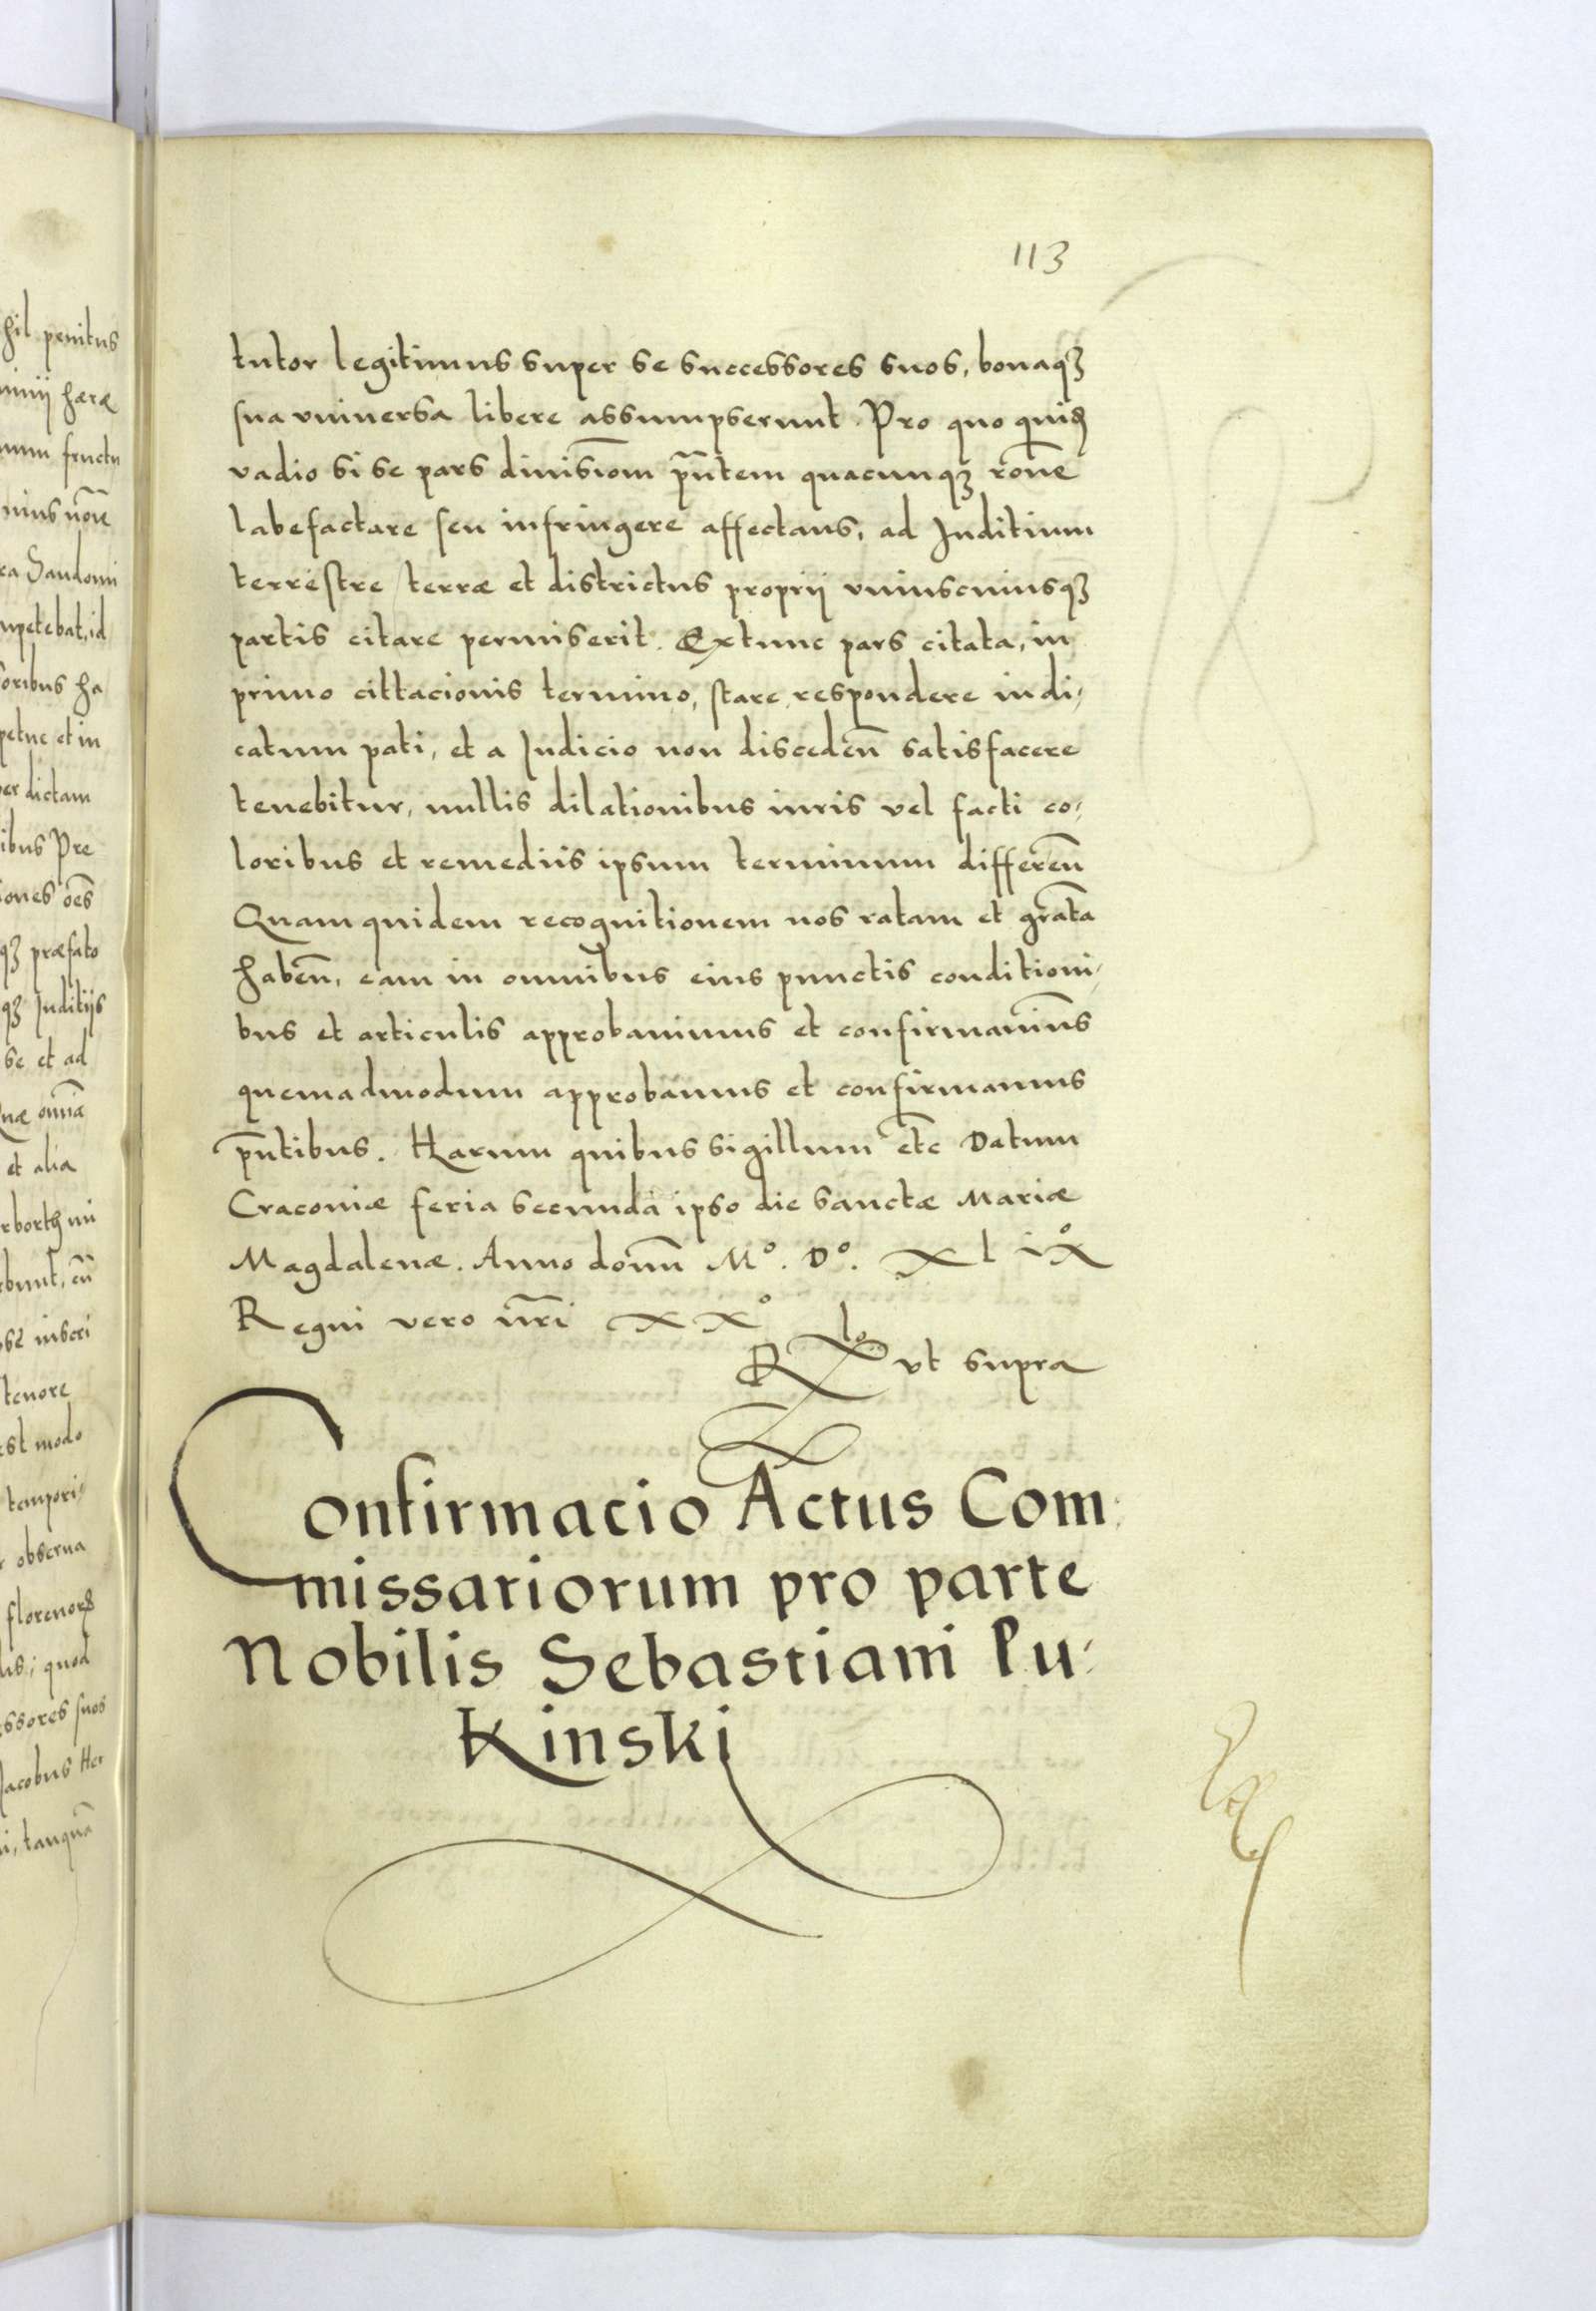 113
tutor legitimus super se successores suos, bonaqꝫ
sua vniuersa libere assumpserunt. Pro quo quidē
vadio si se pars diuisiom̄ pn̄tem quacunqꝫ rōne
labefactare seu infringere affectans, ad Juditium
terrestre terræ et districtus proprij vniuscuiusqꝫ
partis citare permiserit. Extunc pars citata, in
primo cittacionis termino, stare respondere iudi⸗
catum pati, et a Judicio non disceden̄ satisfacere
tenebitur, nullis dilationibus iuris vel facti co⸗
loribus et remediis ipsum terminum differen̄
Quam quidem recognitionem nos ratam et gratā
haben̄, eam in omnibus eius punctis conditioni⸗
bus et articulis approbauimus et confirmauim̄us
quemadmodum approbamus et confirmamus
pn̄tibus. Harum quibus sigillum etc̄ Datum
Cracouiæ feria secunda ipso die sanctæ Mariæ
Magdalenæ. Anno domn̄ Mº. Dº. XLIXº
Regni vero nr̄i XXº
Rlo vt supra
Confirmacio Actus Com⸗
missariorum pro parte
Nobilis Sebastiani Lu⸗
Kinski
hil penitus
nium fructu
ra Sandomi
mpetebat, id
oribus ha
petuc et in
per dictam
ibus Pre
iones oēs
qꝫ præfato
qꝫ Juditijs
se et ad
et alia
tenore
est modo
tempori⸗
r obserua
quod
essores suos
Jacobus Her
i, tanquā